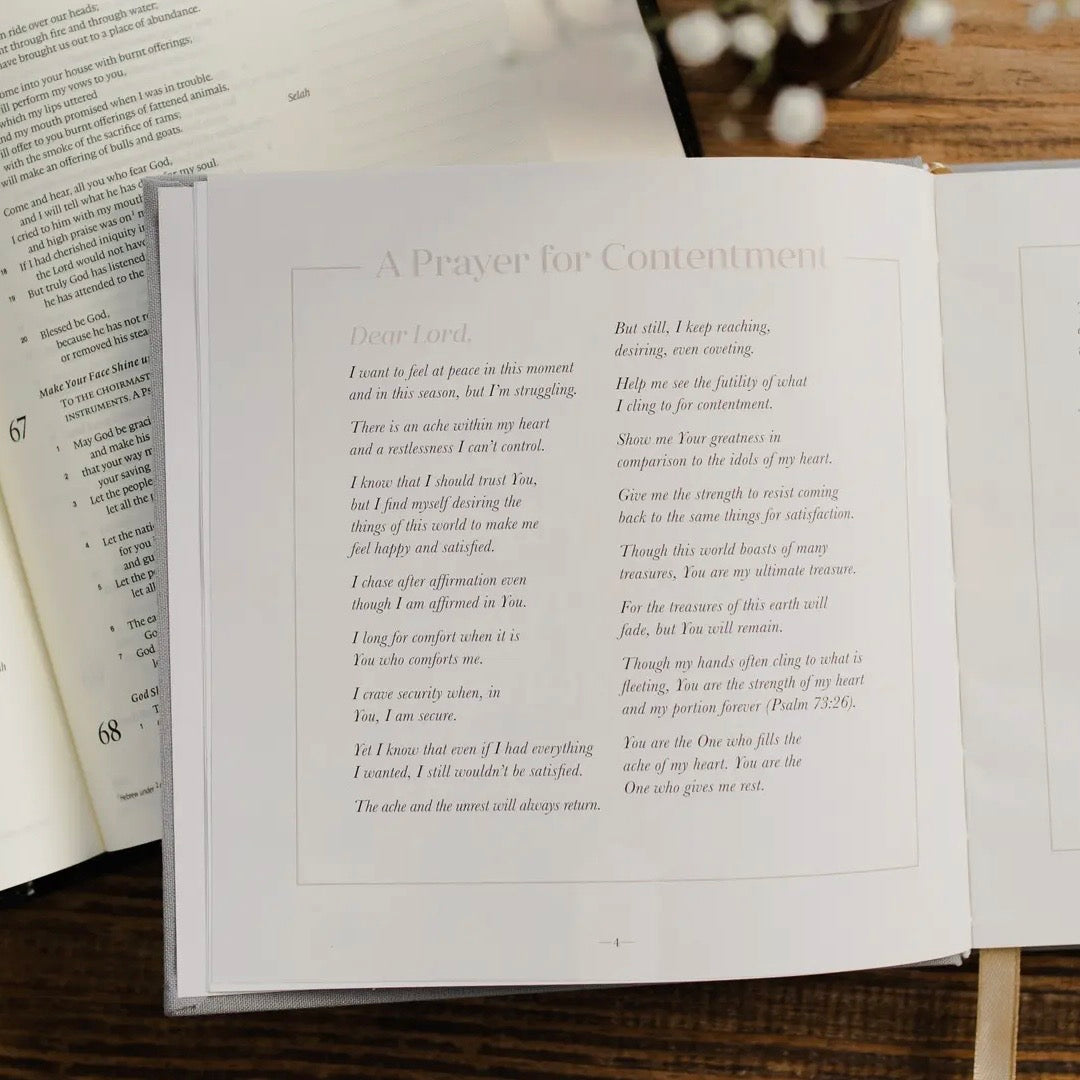 ride over our heads;
through fire and through water;
have brought us out to a place of abundance.
come into your house with burnt offerings;
perform my vows to you,
which my lips uttered
and my mouth promised when I was in trouble.
offer to you burnt offerings of fattened animals,
with the smoke of the sacrifice of rams;
will make an offering of bulls and goats.
Selah
Come and hear, all you who fear God,
and I will tell what he has my soul.
I cried to him with my mouth
and high praise was on
18 If I had cherished iniquity
the Lord would not have
19 But truly God has listened
he has attended to the
20 Blessed be God,
because he has not
or removed his
Make Your Face Shine
67
TO THE
INSTRUMENTS. A
1 May God be
and make his
2 that your way
your saving
3 Let the
let all the
4 Let the
for you
and
5 Let the
let all
6 The
7 God
God
68
1
Hebrew under
A Prayer for Contentment
Dear Lord,
I want to feel at peace in this moment
and in this season, but I'm struggling.
There is an ache within my heart
and a restlessness I can't control.
I know that I should trust You,
but I find myself desiring the
things of this world to make me
feel happy and satisfied.
I chase after affirmation even
though I am affirmed in You.
I long for comfort when it is
You who comforts me.
I crave security when, in
You, I am secure.
Yet I know that even if I had everything
I wanted, I still wouldn't be satisfied.
The ache and the unrest will always return.
But still, I keep reaching,
desiring, even coveting.
Help me see the futility of what
I cling to for contentment.
Show me Your greatness in
comparison to the idols of my heart.
Give me the strength to resist coming
back to the same things for satisfaction.
Though this world boasts of many
treasures, You are my ultimate treasure.
For the treasures of this earth will
fade, but You will remain.
Though my hands often cling to what is
fleeting, You are the strength of my heart
and my portion forever (Psalm 73:26).
You are the One who fills the
ache of my heart. You are the
One who gives me rest.
—4—